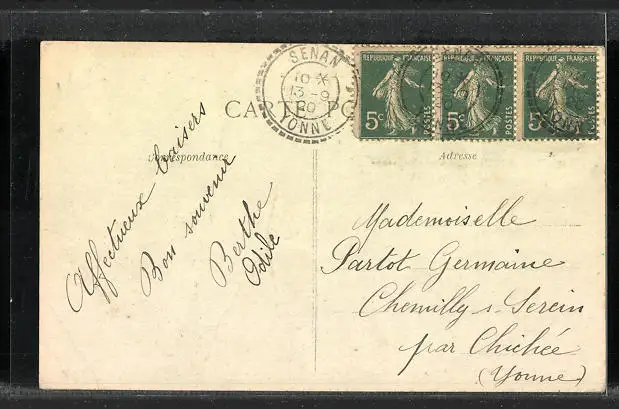 SENAN
10 *
13-9
20
YONNE
REPUBLIQUE FRANÇAISE
5c
POSTES
REPUBLIQUE FRANÇAISE
5c
POSTES
REPUBLIQUE FRANÇAISE
5c
POSTES
CARTE PO
Correspondance
Adresse
Affectueux baisers
Bon souvenir
Berthe
Odile
Mademoiselle
Partot Germaine
Chemilly s. Serein
par Chichée
(Yonne)